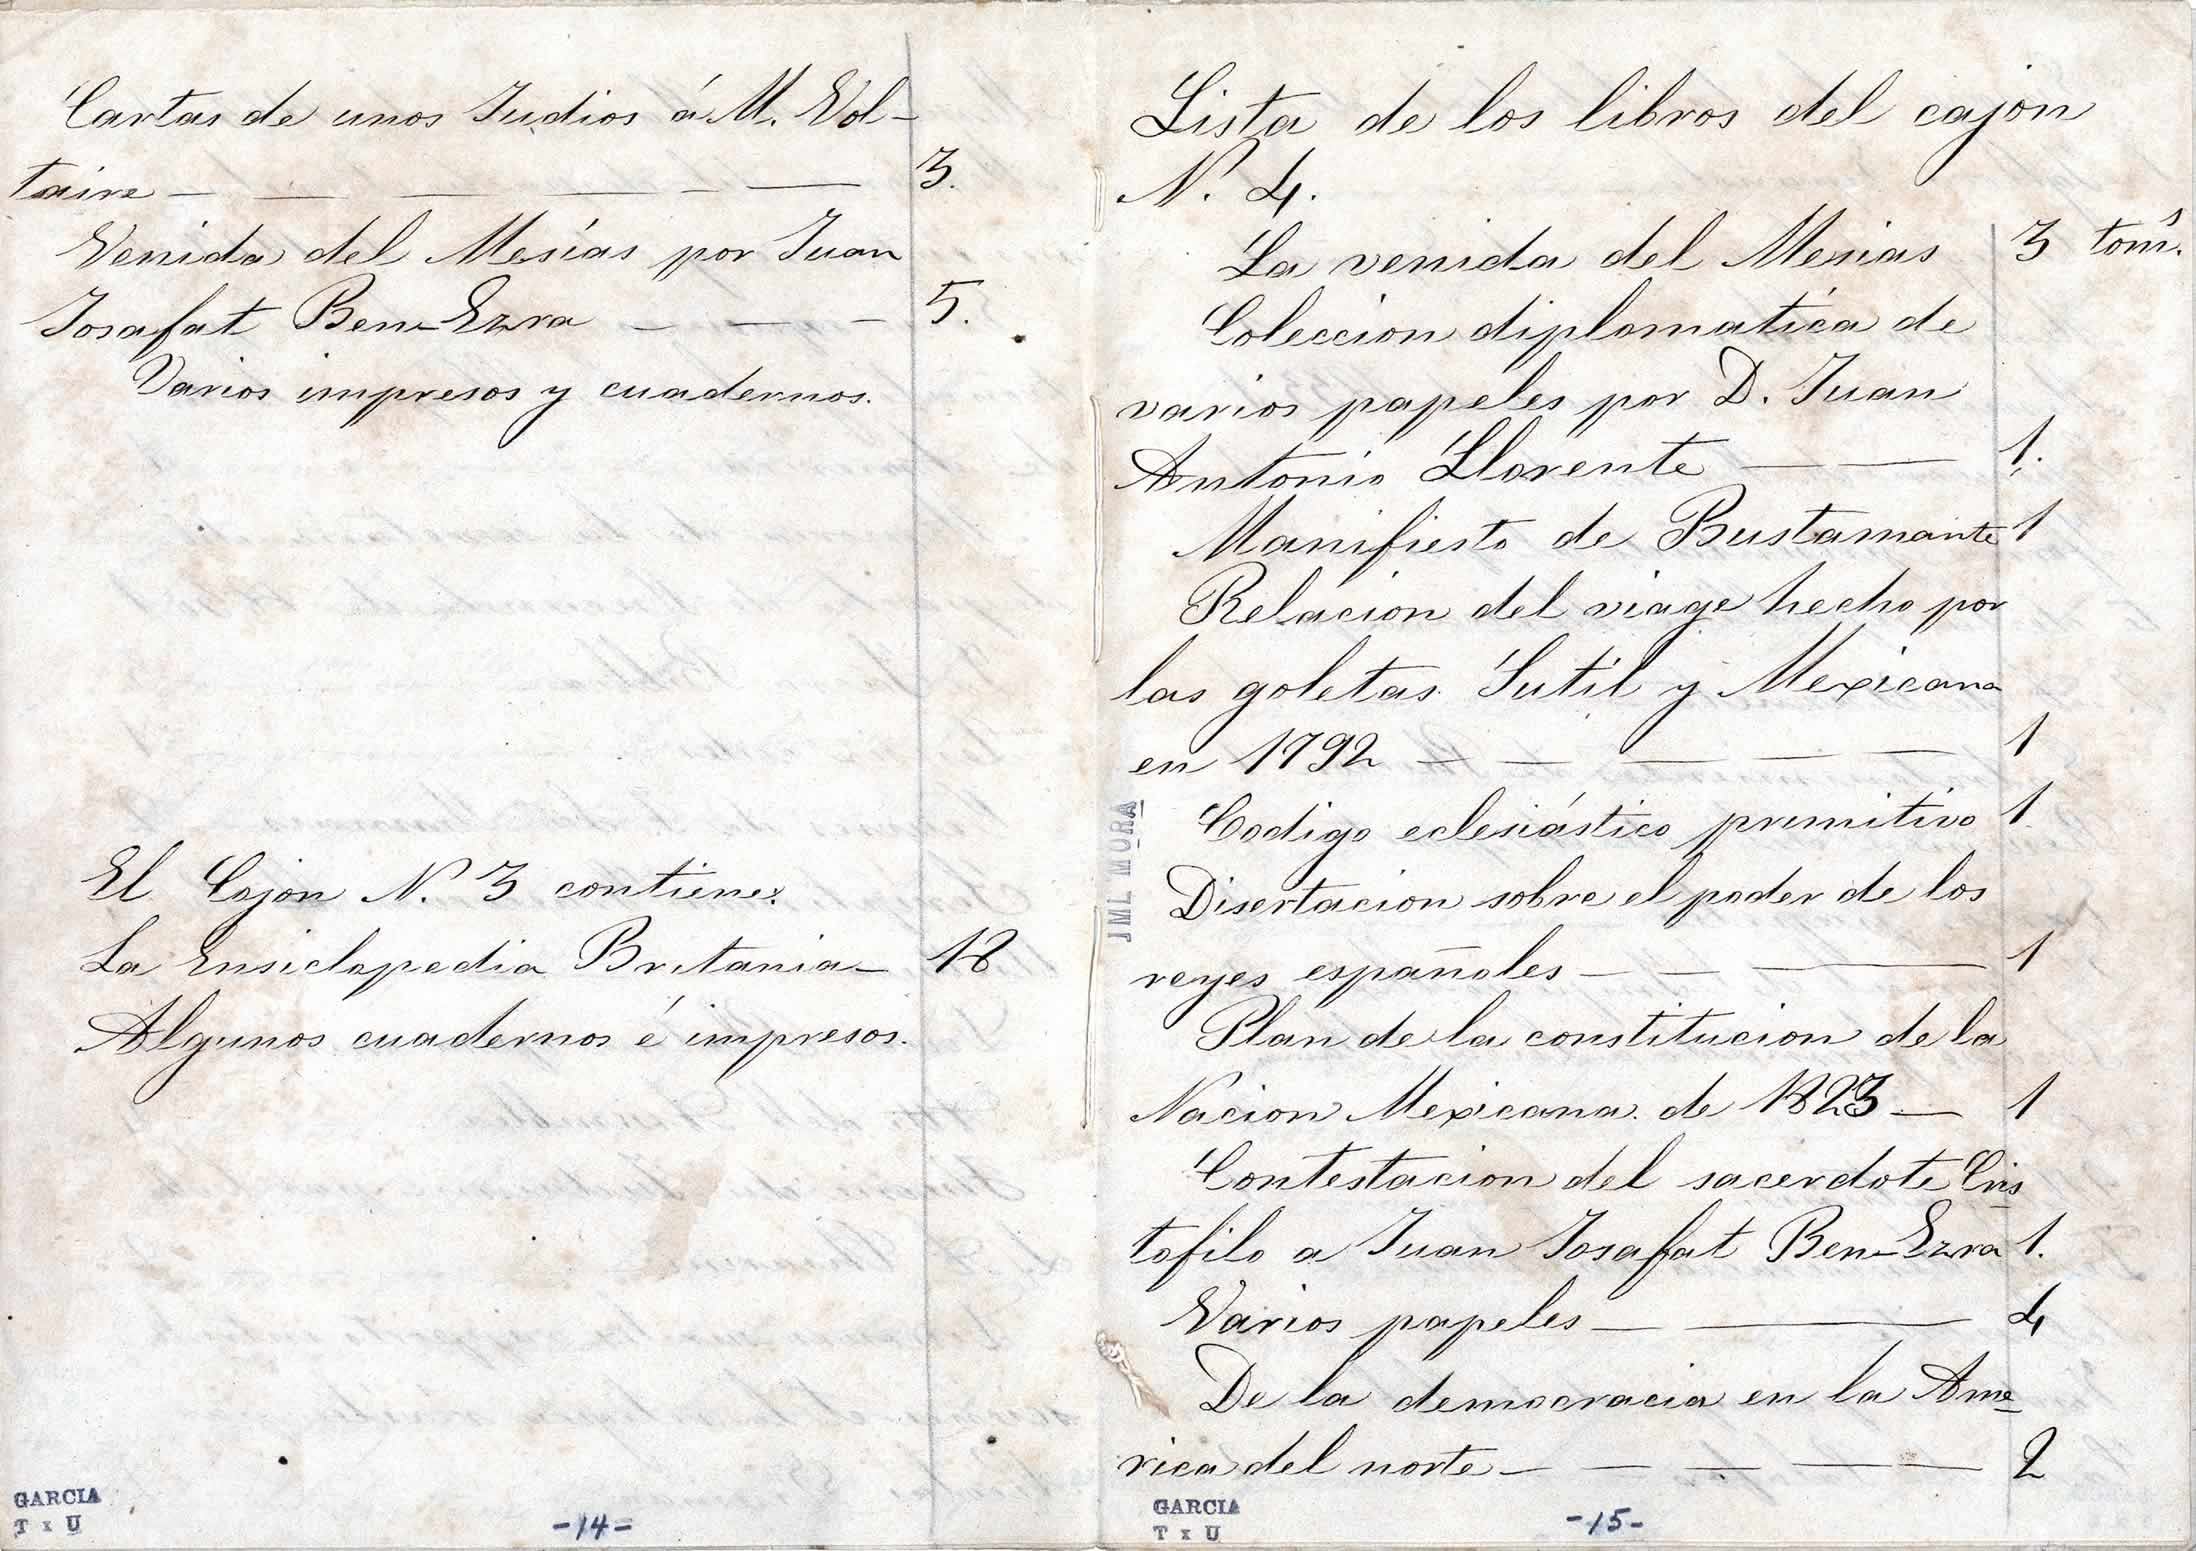 Cartas de unos Judios á M. Vol-
taire — — — — — 3.
Venida del Mesías por Juan
Josafat Ben-Ezra — — — 5.
Varios impresos y cuadernos.
El Cajon N. 3 contiene:
La Ensiclopedia Britania — 18
Algunos cuadernos é impresos.
GARCIA
T x U
-14-
Lista de los libros del cajon
N. 4.
La venida del Mesias 3 toms.
Coleccion diplomatica de
varios papeles por D. Juan
Antonio Llorente — — 1.
Manifiesto de Bustamante 1
Relacion del viage hecho por
las goletas Sutil y Mexicana
en 1792 — — — — — 1
Codigo eclesiástico primitivo 1
Disertacion sobre el poder de los
reyes españoles — — — 1
Plan de la constitucion de la
Nacion Mexicana de 1823 — 1
Contestacion del sacerdote Cris
tofilo a Juan Josafat Ben-Ezra 1.
Varios papeles — — 4
De la democracia en la Ame
rica del norte — — — — — 2
JML MORA
GARCIA
T x U
-15-